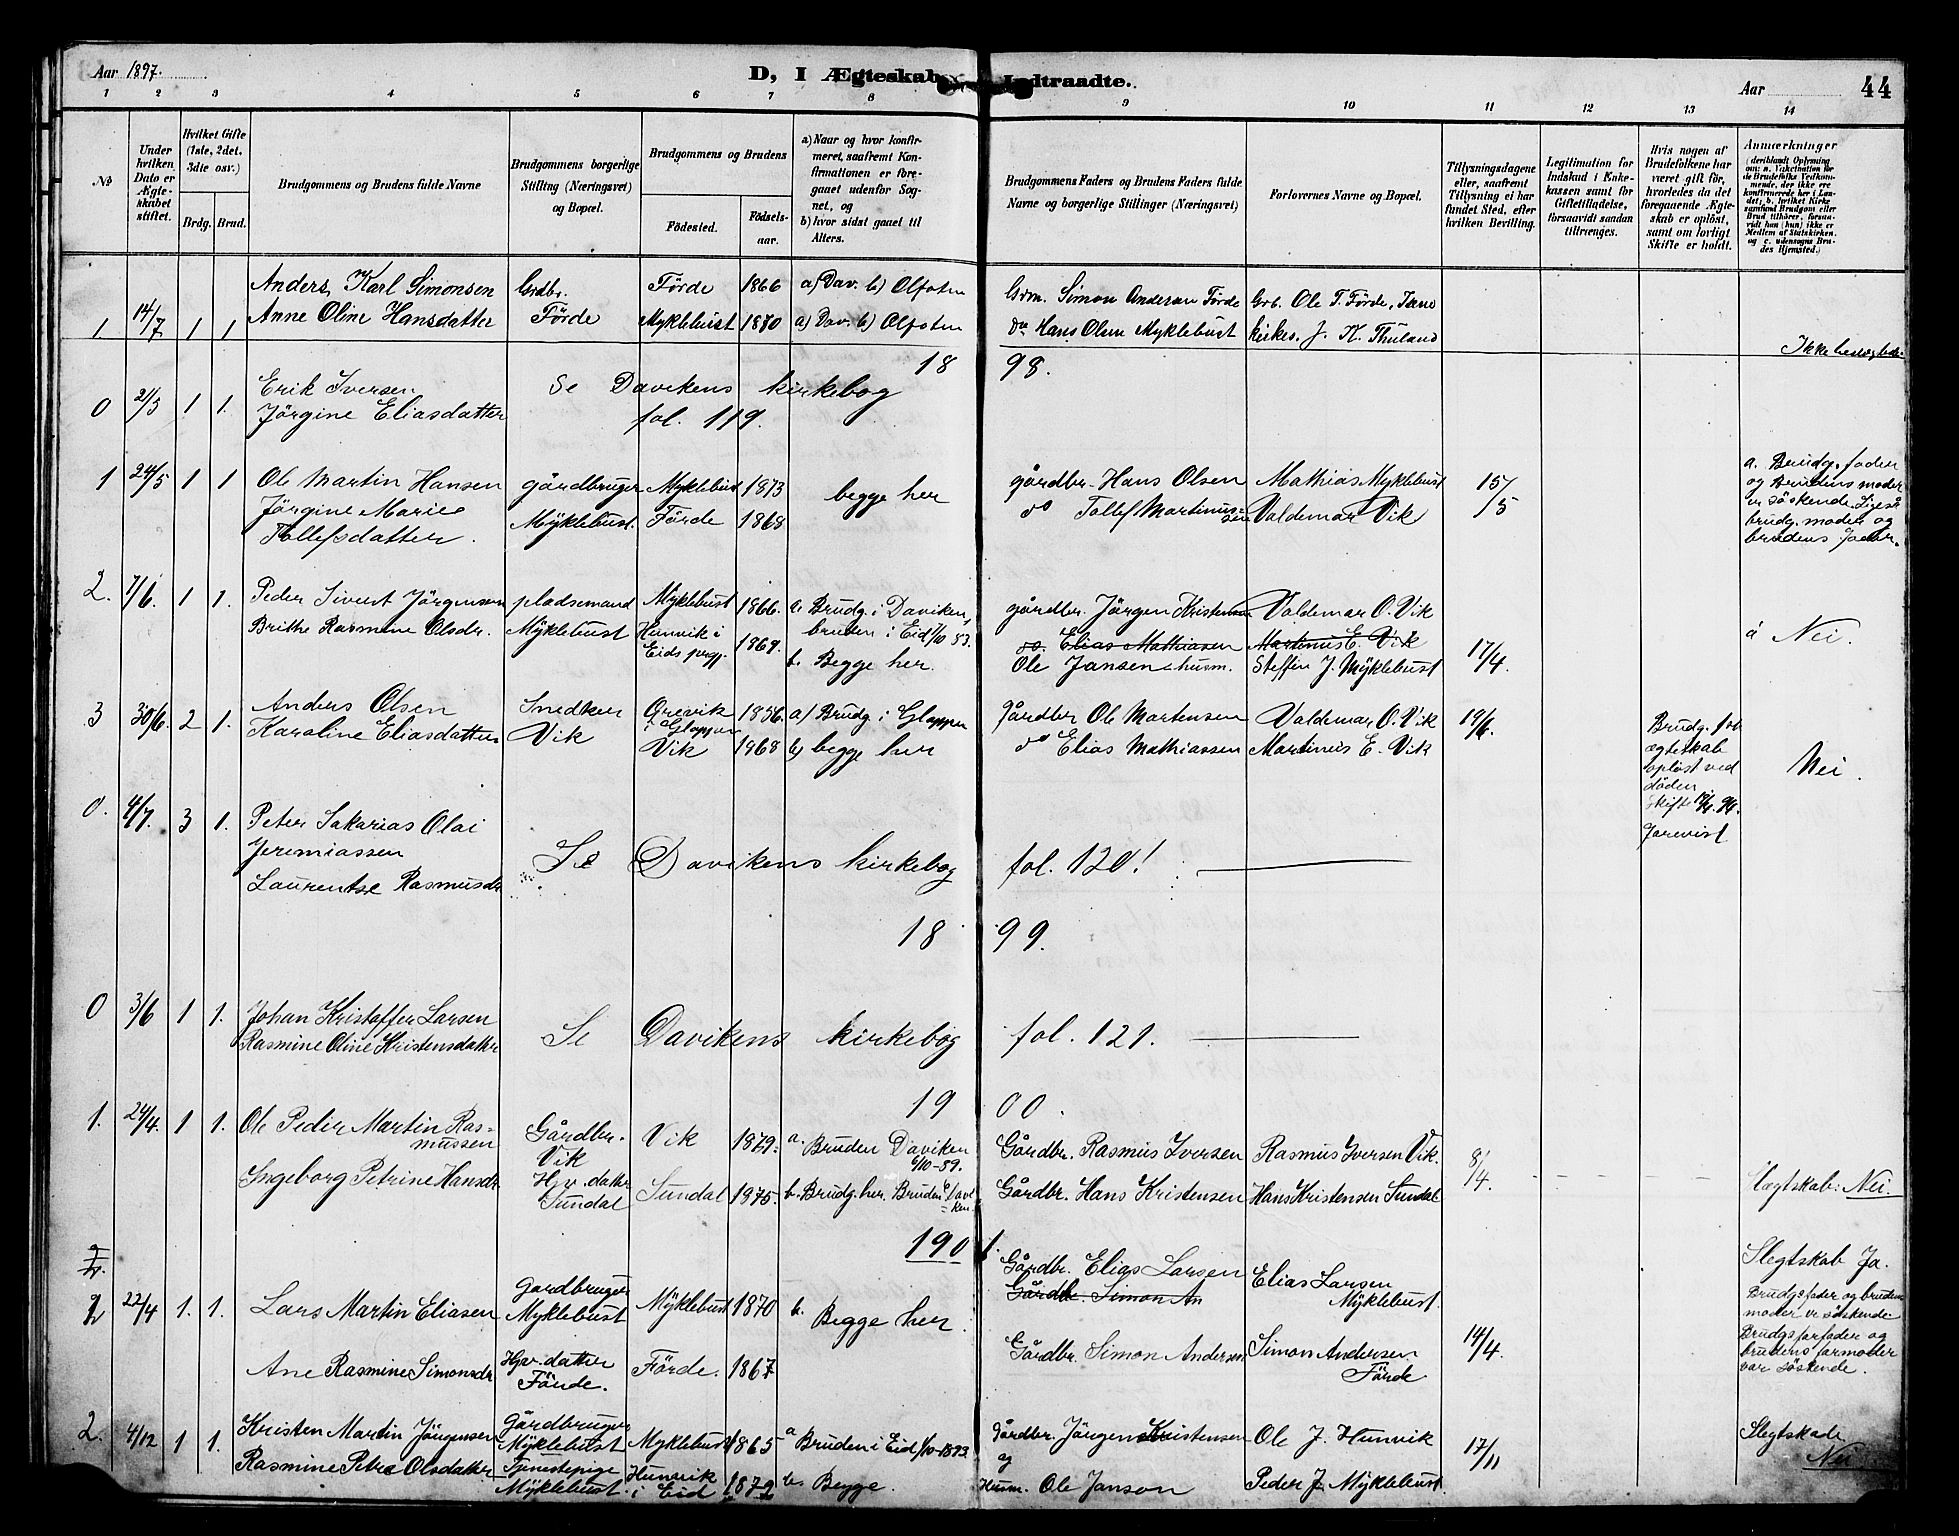 Aar 1897.
D, I Ægteskab Indtraadte.
Aar
44
1 2 3 4 5 6 7 8 9 10 11 12 13 14
No
Under hvilken Dato er Ægteskabet stiftet.
Hvilket Gifte (1ste, 2det, 3die osv.)
Brdg. Brud.
Brudgommens og Brudens fulde Navne
Brudgommens borgerlige Stilling (Næringsvei) og Bopæl.
Brudgommens og Brudens
Fødested.
Fødselsaar.
a) Naar og hvor konfirmeret, saafremt Konfirmationen er foregaaet udenfor Sognet, og
b) hvor sidst gaaet til Alters.
Brudgommens Faders og Brudens Faders fulde Navne og borgerlige Stillinger (Næringsvei)
Forlovernes Navne og Bopæl.
Tillysningsdagene eller, saafremt Tillysning ei har fundet Sted, efter hvilken Bevilling.
Legitimation for Indskud i Enkekassen samt for Giftetilladelse, forsaavidt saadan tiltrænges.
Hvis nogen af Brudefolkene har været gift før, hvorledes da det foregaaende Ægteskab er opløst, samt om lovligt Skifte er holdt.
Anmærkninger
(deriblandt Oplysning om: a. Vakcination for de Brudefolks Vedkommende, der ikke ere konfirmerede her i Landet; b. hvilket Kirkesamfund Brudgom eller Brud tilhører, forsaavidt han (hun) ikke er Medlem af Statskirken, og c. udensogns Brudes Hjemsted.)
Anders Karl Simonsen Grdbr. Førde 1866 a) Dav. b) Olfoten Grm. Simon Andersen Førde Grb. Ole T. Førde,
1. 14/7 1 1 Anne Oline Hansdatter Førde Myklebust 1870 a) Dav. b) Olfoten do Hans Olsen Myklebust kirkes. J. K. Thuland
Ikke beslægtede
18 98.
Erik Iversen Se Davikens kirkebog
0 2/5 1 1. Jørgine Eliasdatter fol. 119.
1 24/5 1 1 Ole Martin Hansen gårdbruger Myklebust 1873 begge her gårdbr. Hans Olsen Mathias Myklebust 15/5
Jørgine Marie Myklebust. Førde 1868 do Tollef Martinussen Valdemar Vik
Tollefsdatter.
a. Brudg. fader
og Brudens moder
er søskende. Ligeså
brudg. moder og
brudens fader.
2. 7/6. 1 1. Peder Sivert Jørgensen pladsemand Myklebust 1866. a. Brudg. i Daviken, gårdbr. Jørgen Kristensen Valdemar O. Vik
Brithe Rasmine Olsdr. Myklebust Hunvik i 1869. bruden i Eid 1/10 83. do. Elias Mathiassen Martinus E. Vik á Nei.
Eids prgj. b. Begge her. Ole Jansen husm. Steffen J. Myklebust 17/4
3 30/6. 2 1. Anders Olsen Snedker Orevik 1856. a) Brudg i Gloppen gårdbr Ole Martensen Valdemar O. Vik 19/6.
i Gloppen
Karoline Eliasdatter Vik Vik 1968 b) begge her do Elias Mathiassen Martinus E. Vik
Brudg. før
ægteskab
opløst ved
døden
Skifte 98.
forevist
Nei.
0. 4/7. 3 1. Peter Sakarias Olai
Jeremiassen
Laurentse Rasmusdr Se Davikens kirkebog fol. 120!
18 99.
0 3/6 1 1. Johan Kristoffer Larsen
Rasmine Oline Kristensdatter Se Davikens kirkebog fol. 121.
19 00.
1. 24/4. 1 1. Ole Peder Martin Rasmussen Gårdbr. Vik Vik 1879. a. Bruden Daviken 6/10-89. Gårdbr. Rasmus Iversen Rasmus Iversen Vik. 8/4.
Ingeborg Petrine Hansdr Hjv. datter Sundal Sundal 1875. b. Brudg. her. Bruden i Daviken. Gårdbr. Hans Kristensen Hans Kristensen Sundal
Slegtskab: Nei.
190 1.
2 22/4 1. 1. Lars Martin Eliasen Gardbruger Myklebust Myklebust 1870 b. Begge her. Gårdbr. Elias Larsen Elias Larsen Myklebust.
Gårdbr. Simon An
Ane Rasmine Simonsdr Hjv. datter Førde. Førde. 1867 Gårdbr. Simon Andersen Simon Andersen Førde 14/4.
Slegtskab Ja.
Brudgs fader og brudens
moder er søskende
Brudgs farfader og
brudens farmoder
var søskende.
2. 4/12 1 1. Kristen Martin Jørgensen Gårdbruger Myklebust Myklebust 1865 a Bruden i Eid 1/10-1893 Gårdbr. Jørgen Kristensen Ole J. Hunvik 17/11
og
Rasmine Petra Olsdatter Tjenestepige Myklebust. Hunvik i Eid 1872 b. Begge. Husm. Ole Janson Peder J. Myklebust.
Slegtskab
Nei